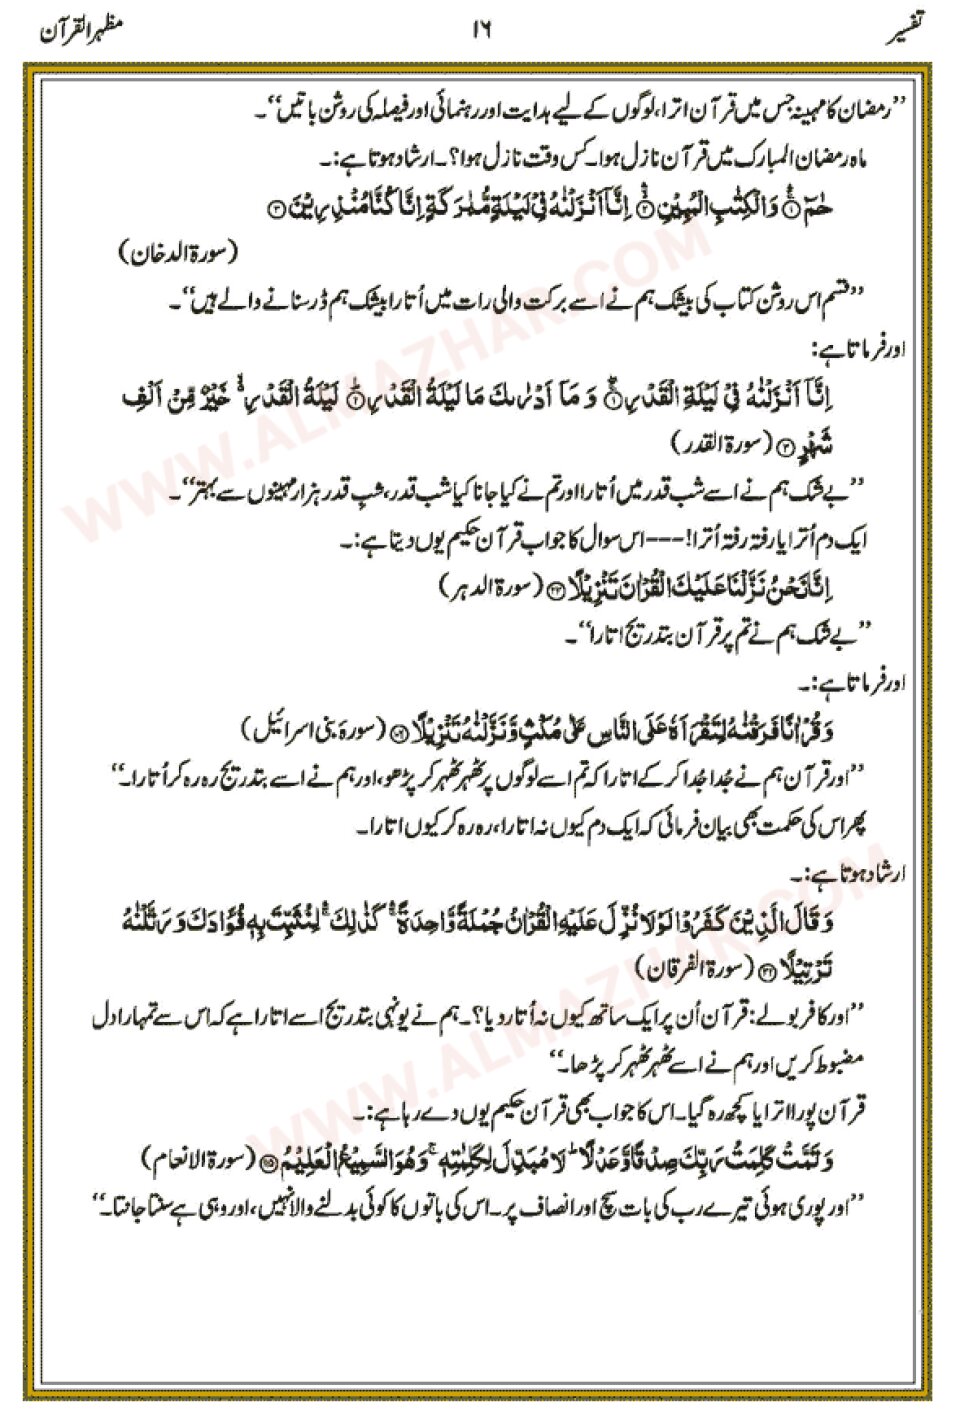 تفسیر ۱۶ مظہر القرآن
’’رمضان کا مہینہ جس میں قرآن اترا، لوگوں کے لیے ہدایت اور رہنمائی اور فیصلہ کی روشن باتیں‘‘۔
ماہ رمضان المبارک میں قرآن نازل ہوا۔ کس وقت نازل ہوا؟۔ ارشاد ہوتا ہے:۔
حٰمٓ ۚ﴿۱﴾ وَالْکِتٰبِ الْمُبِیْنِ ۙ﴿۲﴾ اِنَّاۤ اَنْزَلْنٰهُ فِیْ لَیْلَةٍ مُّبٰرَكَةٍ اِنَّا كُنَّا مُنْذِرِیْنَ ﴿۳﴾
(سورۃ الدخان)
’’قسم اس روشن کتاب کی بیشک ہم نے اسے برکت والی رات میں اُتارا بیشک ہم ڈر سنانے والے ہیں‘‘۔
اور فرماتا ہے:
اِنَّاۤ اَنْزَلْنٰهُ فِیْ لَیْلَةِ الْقَدْرِ ۚۖ﴿۱﴾ وَ مَاۤ اَدْرٰىكَ مَا لَیْلَةُ الْقَدْرِ ؕ﴿۲﴾ لَیْلَةُ الْقَدْرِ ۙ۬ خَیْرٌ مِّنْ اَلْفِ
شَهْرٍ ﴿۳﴾ (سورۃ القدر)
’’بے شک ہم نے اسے شب قدر میں اُتارا اور تم نے کیا جانا کیا شب قدر، شبِ قدر ہزار مہینوں سے بہتر‘‘۔
ایک دم اُترا یا رفتہ رفتہ اُترا!---اس سوال کا جواب قرآن حکیم یوں دیتا ہے:۔
اِنَّا نَحْنُ نَزَّلْنَا عَلَیْكَ الْقُرْاٰنَ تَنْزِیْلًا ﴿۲۳﴾ (سورۃ الدہر)
’’بے شک ہم نے تم پر قرآن بتدریج اتارا‘‘۔
اور فرماتا ہے:۔
وَ قُرْاٰنًا فَرَقْنٰهُ لِتَقْرَاَهٗ عَلَی النَّاسِ عَلٰی مُكْثٍ وَّ نَزَّلْنٰهُ تَنْزِیْلًا ﴿۱۰۶﴾ (سورۂ بنی اسرائیل)
’’اور قرآن ہم نے جُدا جُدا کر کے اتارا کہ تم اسے لوگوں پر ٹھہر ٹھہر کر پڑھو، اور ہم نے اسے بتدریج رہ رہ کر اُتارا۔‘‘
پھر اس کی حکمت بھی بیان فرمائی کہ ایک دم کیوں نہ اتارا، رہ رہ کر کیوں اتارا۔
ارشاد ہوتا ہے:۔
وَ قَالَ الَّذِیْنَ كَفَرُوْا لَوْ لَا نُزِّلَ عَلَیْهِ الْقُرْاٰنُ جُمْلَةً وَّاحِدَةً ۚۛ كَذٰلِكَ ۚۛ لِنُثَبِّتَ بِهٖ فُؤَادَكَ وَ رَتَّلْنٰهُ
تَرْتِیْلًا ﴿۳۲﴾ (سورۃ الفرقان)
’’اور کافر بولے: قرآن اُن پر ایک ساتھ کیوں نہ اُتار دیا؟۔ ہم نے یونہی بتدریج اسے اتارا ہے کہ اس سے تمہارا دل
مضبوط کریں اور ہم نے اسے ٹھہر ٹھہر کر پڑھا۔‘‘
قرآن پورا اترا یا کچھ رہ گیا۔ اس کا جواب بھی قرآن حکیم یوں دے رہا ہے:۔
وَ تَمَّتْ كَلِمَتُ رَبِّكَ صِدْقًا وَّ عَدْلًا ؕ لَا مُبَدِّلَ لِكَلِمٰتِهٖ ۚ وَ هُوَ السَّمِیْعُ الْعَلِیْمُ ﴿۱۱۵﴾ (سورۃ الانعام)
’’اور پوری ہوئی تیرے رب کی بات سچ اور انصاف پر۔ اس کی باتوں کا کوئی بدلنے والا نہیں، اور وہی ہے سنتا جانتا۔‘‘
WWW.ALMAZHAR.COM
WWW.ALMAZHAR.COM